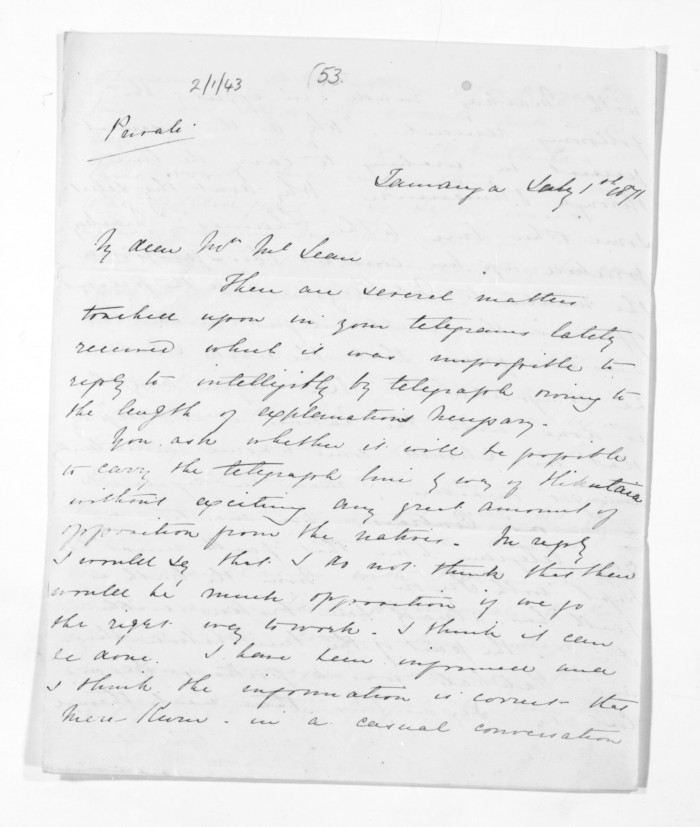 2/1/43 (53.
Private
Tauranga July 1st 1871
My dear Mr McLean
There are several matters
touched upon in your telegrams lately
received which it was impossible to
reply to intelligibly by telegraph owing to
the length of explanations necessary.
You ask whether it will be possible
to carry the telegraph line by way of Hikutaia
without exciting any great amount of
opposition from the natives. In reply
I would say that I do not think that there
would be much opposition if we go
the right way to work. I think it can
be done. I have been informed and
I think the information is correct that
Mere Kuru in a casual conversation